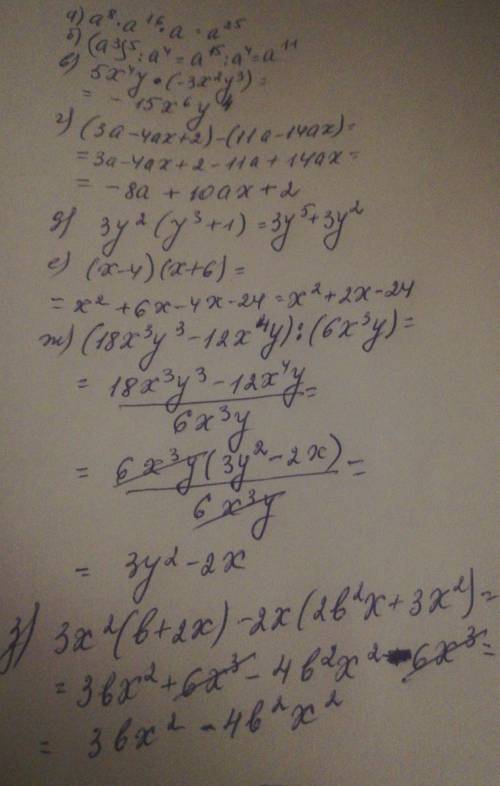 а) a⁸ · a¹⁶ · a = a²⁵
б) (a³)⁵ : a⁴ = a¹⁵ : a⁴ = a¹¹
в) 5x⁴y · (-3x²y³) =
= - 15x⁶y⁴
г) (3a-4ax+2)-(11a-14ax)=
= 3a-4ax+2-11a+14ax=
= -8a + 10ax + 2
д) 3y² (y³+1) = 3y⁵+3y²
е) (x-4)(x+6)=
= x² + 6x - 4x - 24 = x² + 2x - 24
ж) (18x³y³ - 12x⁴y) : (6x³y) =
= 18x³y³ - 12x⁴y =
6x³y
= 6x³y(3y² - 2x) =
6x³y
= 3y² - 2x
з) 3x²(b+2x) - 2x(2b²x + 3x²) =
= 3bx² + 6x³ - 4b²x² - 6x³ =
= 3bx² - 4b²x²